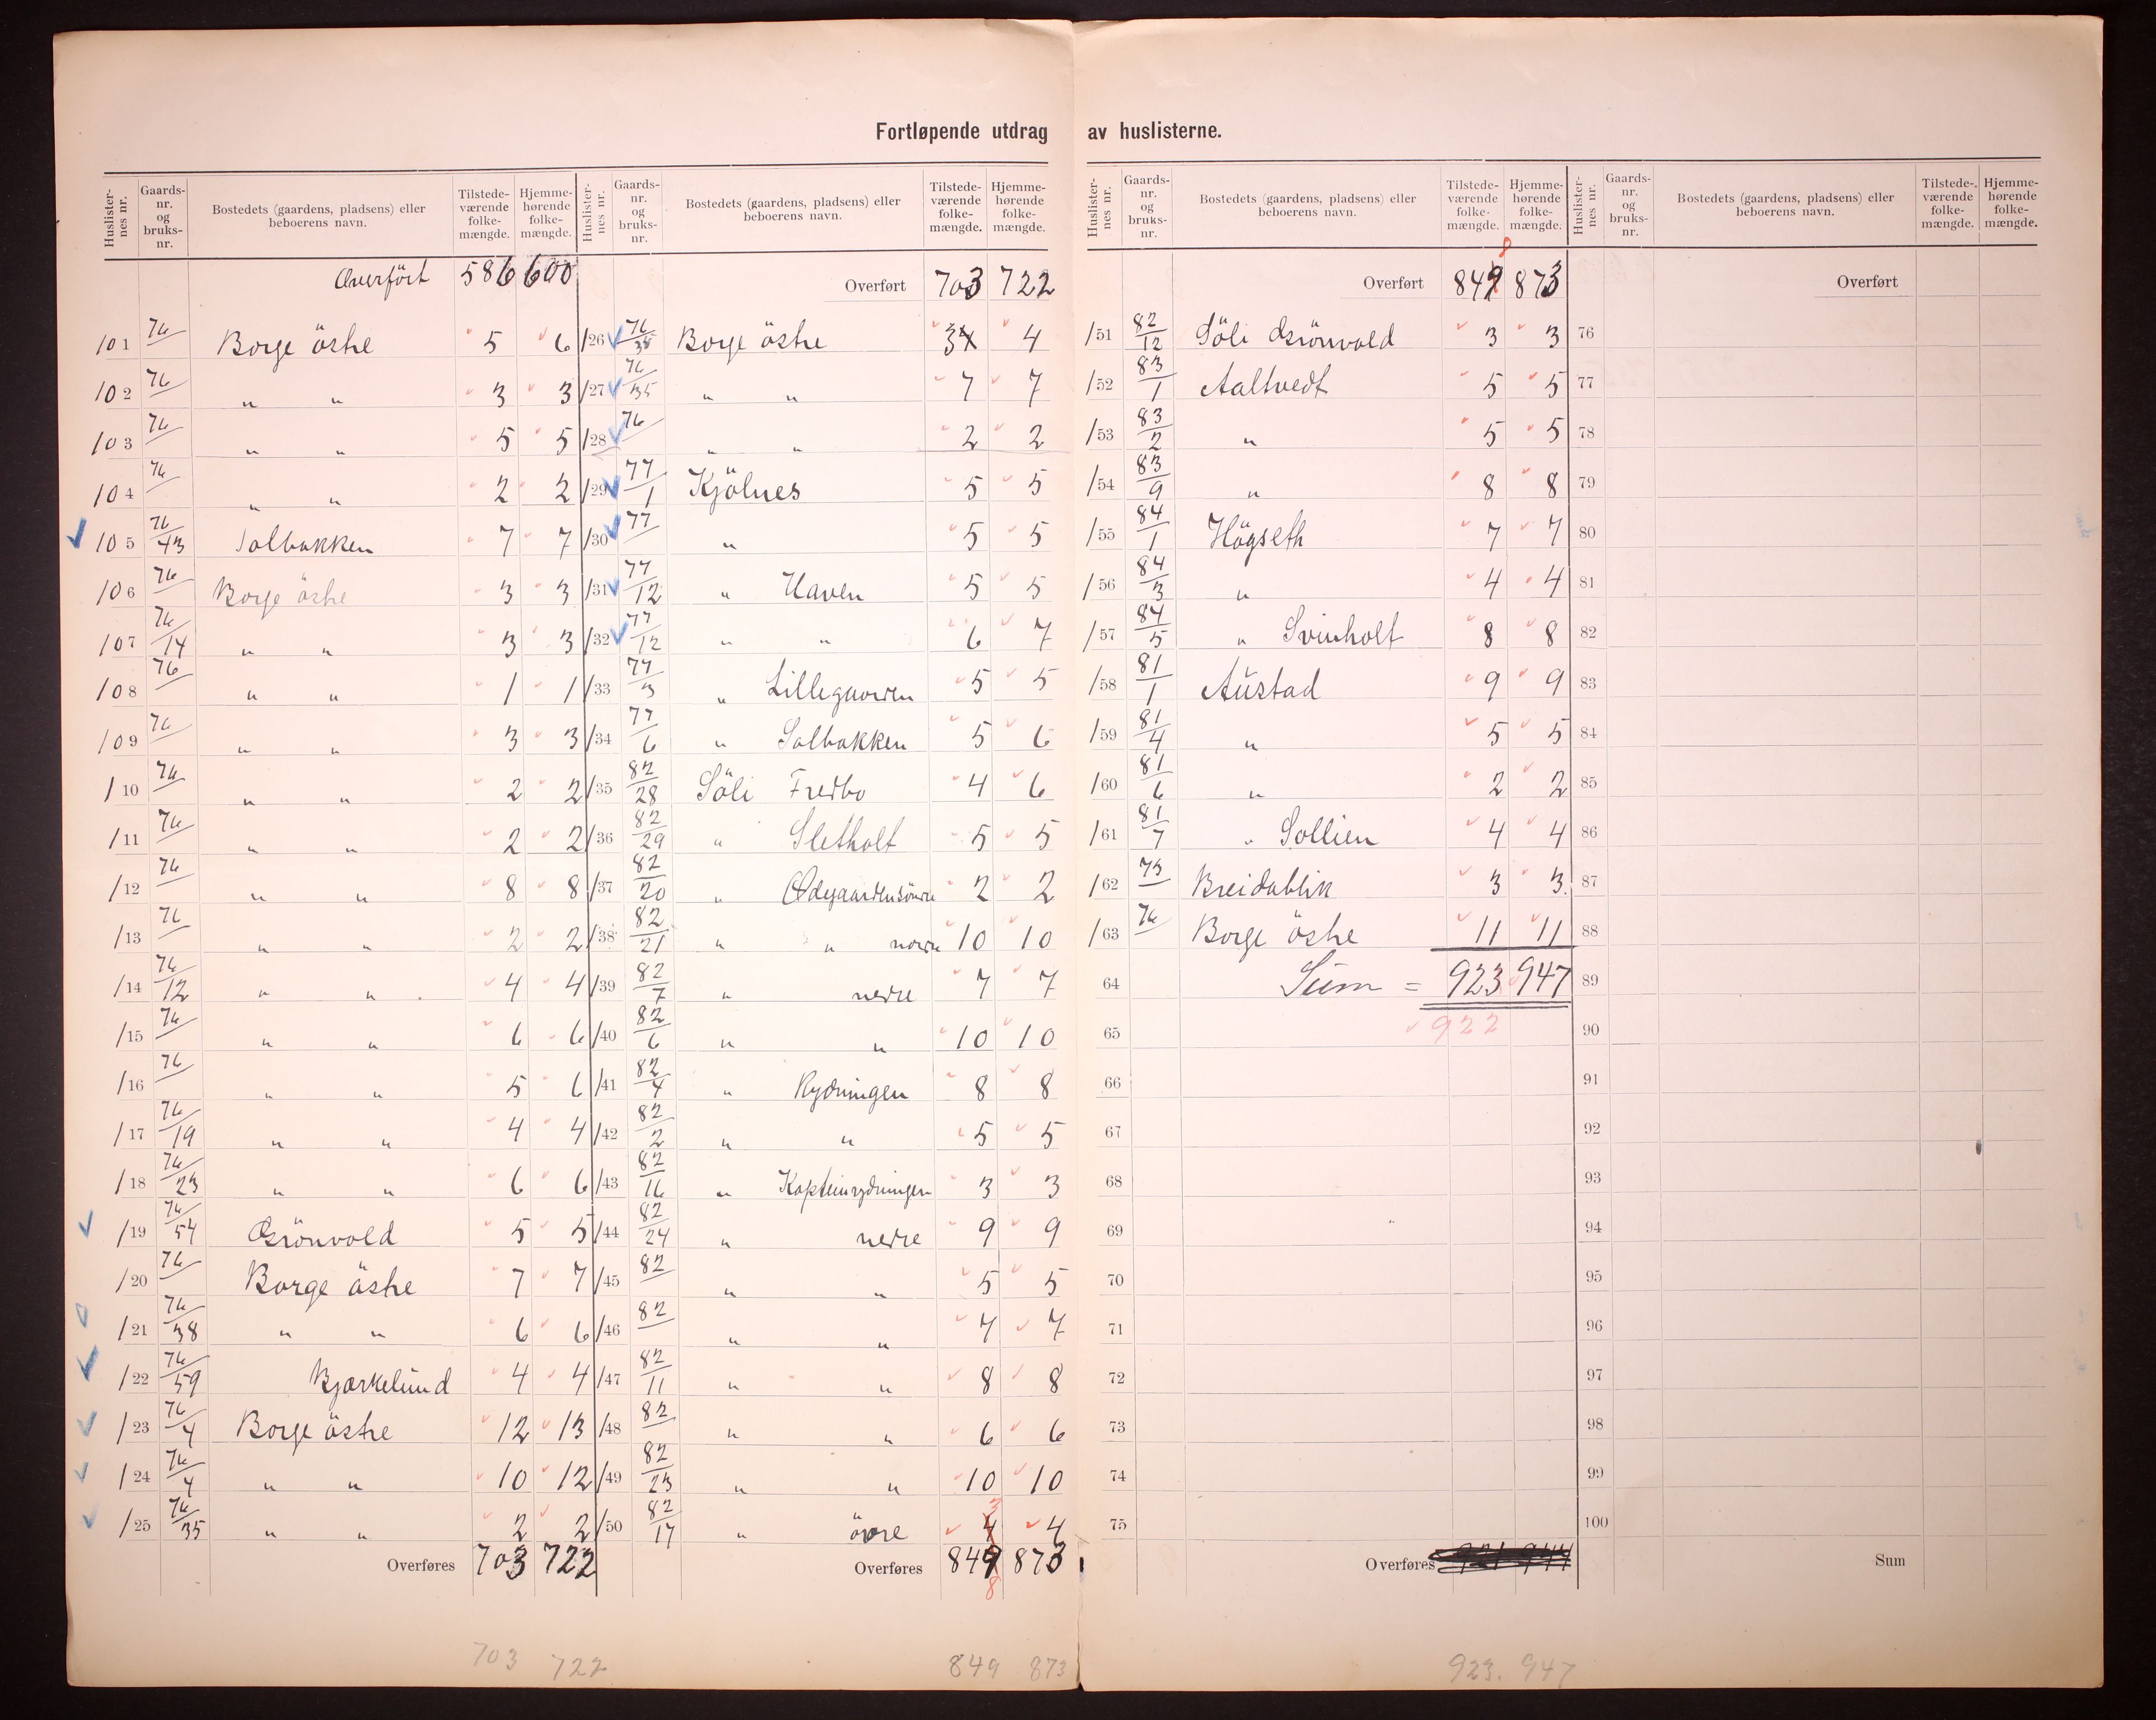 Fortløpende utdrag av huslisterne.
Huslister-nes nr. Gaards-nr. og bruks-nr. Bostedets (gaardens, pladsens) eller beboerens navn. Tilstede-værende folke-mængde. Hjemme-hørende folke-mængde.
Overført 586 600
101 76 Borge östre 5 6
102 76 " " 3 3
103 76 " " 5 5
104 76 " " 2 2
105 76/43 Solbakken 7 7
106 76 Borge östre 3 3
107 76/14 " " 3 3
108 76 " " 1 1
109 76 " " 3 3
110 76 " " 2 2
111 76 " " 2 2
112 76 " " 8 8
113 76 " " 2 2
114 76/12 " " 4 4
115 76 " " 6 6
116 76 " " 5 6
117 76/19 " " 4 4
118 76/23 " " 6 6
119 76/54 Grönvold 5 5
120 76 Borge östre 7 7
121 76/38 " " 6 6
122 76/59 Bjørkelund 4 4
123 76/4 Borge östre 12 13
124 76/4 " " 10 12
125 76/35 " " 2 2
Overføres 703 722
703 722
Huslister-nes nr. Gaards-nr. og bruks-nr. Bostedets (gaardens, pladsens) eller beboerens navn. Tilstede-værende folke-mængde. Hjemme-hørende folke-mængde.
Overført 703 722
126 76/35 Borge östre 3 4
127 76/35 " " 7 7
128 76 " " 2 2
129 77/1 Kjölnes 5 5
130 77 " 5 5
131 77/12 " Haven 5 5
132 77/12 " " 6 7
133 77/3 " Lillegaarden 5 5
134 77/6 " Solbakken 5 6
135 82/28 Söli Fredbo 4 6
136 82/29 " Sletholt 5 5
137 82/20 " Ødegaarden söndre 2 2
138 82/21 " " nordre 10 10
139 82/7 " nedre 7 7
140 82/6 " " 10 10
141 82/4 " Rydningen 8 8
142 82/2 " " 5 5
143 82/16 " Kapteinrydningen 3 3
144 82/24 " nedre 9 9
145 82 " " 5 5
146 82 " " 7 7
147 82/11 " " 8 8
148 82 " " 6 6
149 82/23 " " 10 10
150 82/17 " övre 4 3 4
Overføres 849 8 873
849 873
Huslister-nes nr. Gaards-nr. og bruks-nr. Bostedets (gaardens, pladsens) eller beboerens navn. Tilstede-værende folke-mængde. Hjemme-hørende folke-mængde.
Overført 849 8 873
151 82/12 Söli Grönvold 3 3
152 83/1 Aaltvedt 5 5
153 83/2 " 5 5
154 83/9 " 8 8
155 84/1 Högseth 7 7
156 84/3 " 4 4
157 84/5 " Svinholt 8 8
158 81/1 Austad 9 9
159 81/4 " 5 5
160 81/6 " 2 2
161 81/7 " Sollien 4 4
162 75 Breidablik 3 3
163 76 Borge östre 11 11
64 Sum = 923 947
65 922
66
67
68
69
70
71
72
73
74
75
Overføres 921 944
923. 947
Huslister-nes nr. Gaards-nr. og bruks-nr. Bostedets (gaardens, pladsens) eller beboerens navn. Tilstede-værende folke-mængde. Hjemme-hørende folke-mængde.
Overført
76
77
78
79
80
81
82
83
84
85
86
87
88
89
90
91
92
93
94
95
96
97
98
99
100
Sum